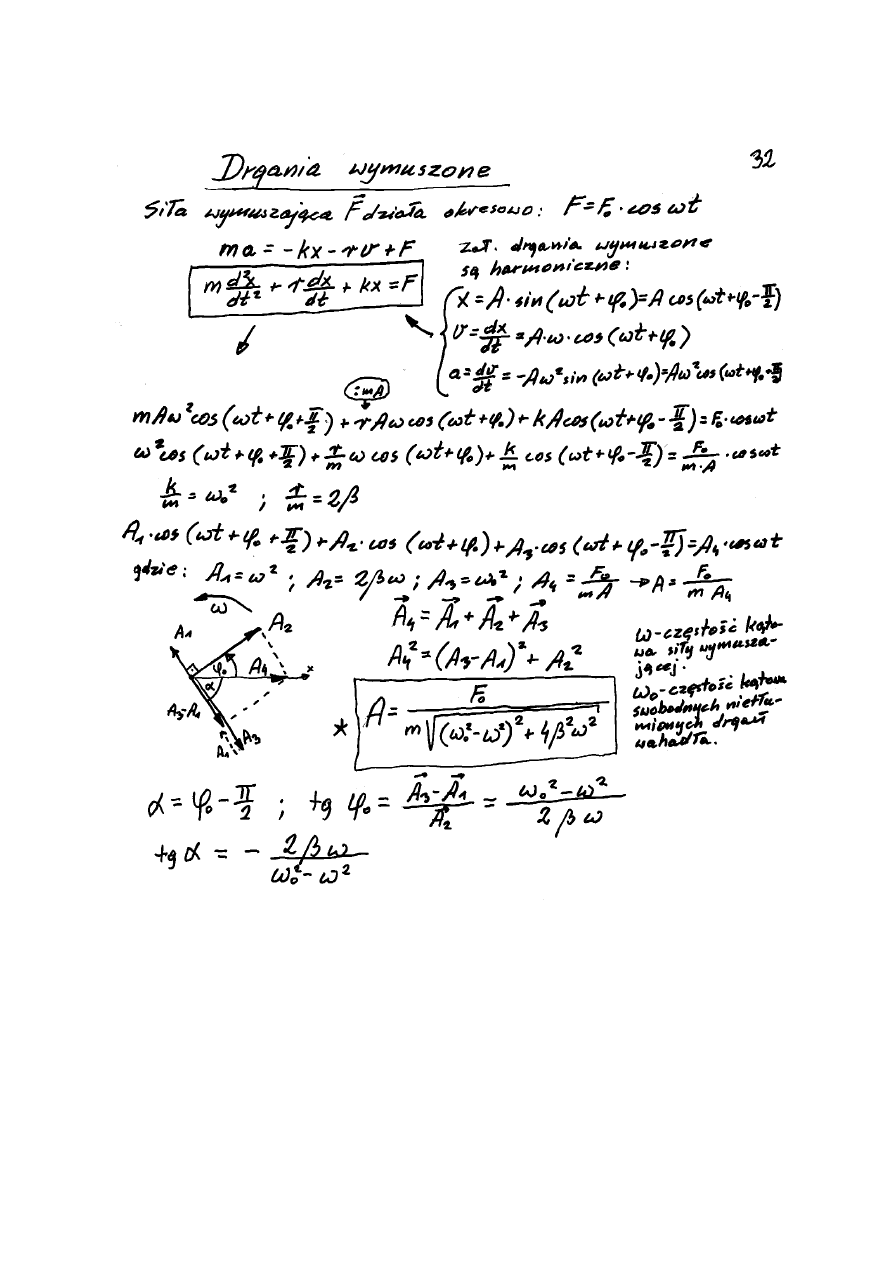 32
Drgania wymuszone
Siła wymuszająca F⃗ działa okresowo: F = F₀ · cos ωt
ma = -kx - rv + F
zał. drgania wymuszone
są harmoniczne:
m d²x/dt² + r dx/dt + kx = F
x = A · sin(ωt + φ₀) = A cos(ωt + φ₀ - π/2)
v = dx/dt = A·ω·cos(ωt + φ₀)
a = dv/dt = -Aω² sin(ωt + φ₀) = Aω² cos(ωt + φ₀ + π/2)
:mA
mAω² cos(ωt + φ₀ + π/2) + rAω cos(ωt + φ₀) + kA cos(ωt + φ₀ - π/2) = F₀ · cos ωt
ω² cos(ωt + φ₀ + π/2) + r/m ω cos(ωt + φ₀) + k/m cos(ωt + φ₀ - π/2) = F₀/(m·A) · cos ωt
k/m = ω₀² ; r/m = 2β
A₁ · cos(ωt + φ₀ + π/2) + A₂ · cos(ωt + φ₀) + A₃ · cos(ωt + φ₀ - π/2) = A₄ · cos ωt
gdzie: A₁ = ω² ; A₂ = 2βω ; A₃ = ω₀² ; A₄ = F₀/(mA) → A = F₀/(m A₄)
ω
A₁
A₂
φ₀
A₄
x
α
A₃-A₁
A₁
A₃
A⃗₄ = A⃗₁ + A⃗₂ + A⃗₃
A₄² = (A₃ - A₁)² + A₂²
* A = F₀/(m√((ω₀² - ω²)² + 4β²ω²))
ω - częstość kąto-
wa siły wymusza-
jącej.
ω₀ - częstość kątowa
swobodnych nietłu-
mionych drgań
wahadła.
α = φ₀ - π/2 ; tg φ₀ = (A⃗₃ - A⃗₁)/A⃗₂ = (ω₀² - ω²)/(2βω)
tg α = - 2βω/(ω₀² - ω²)